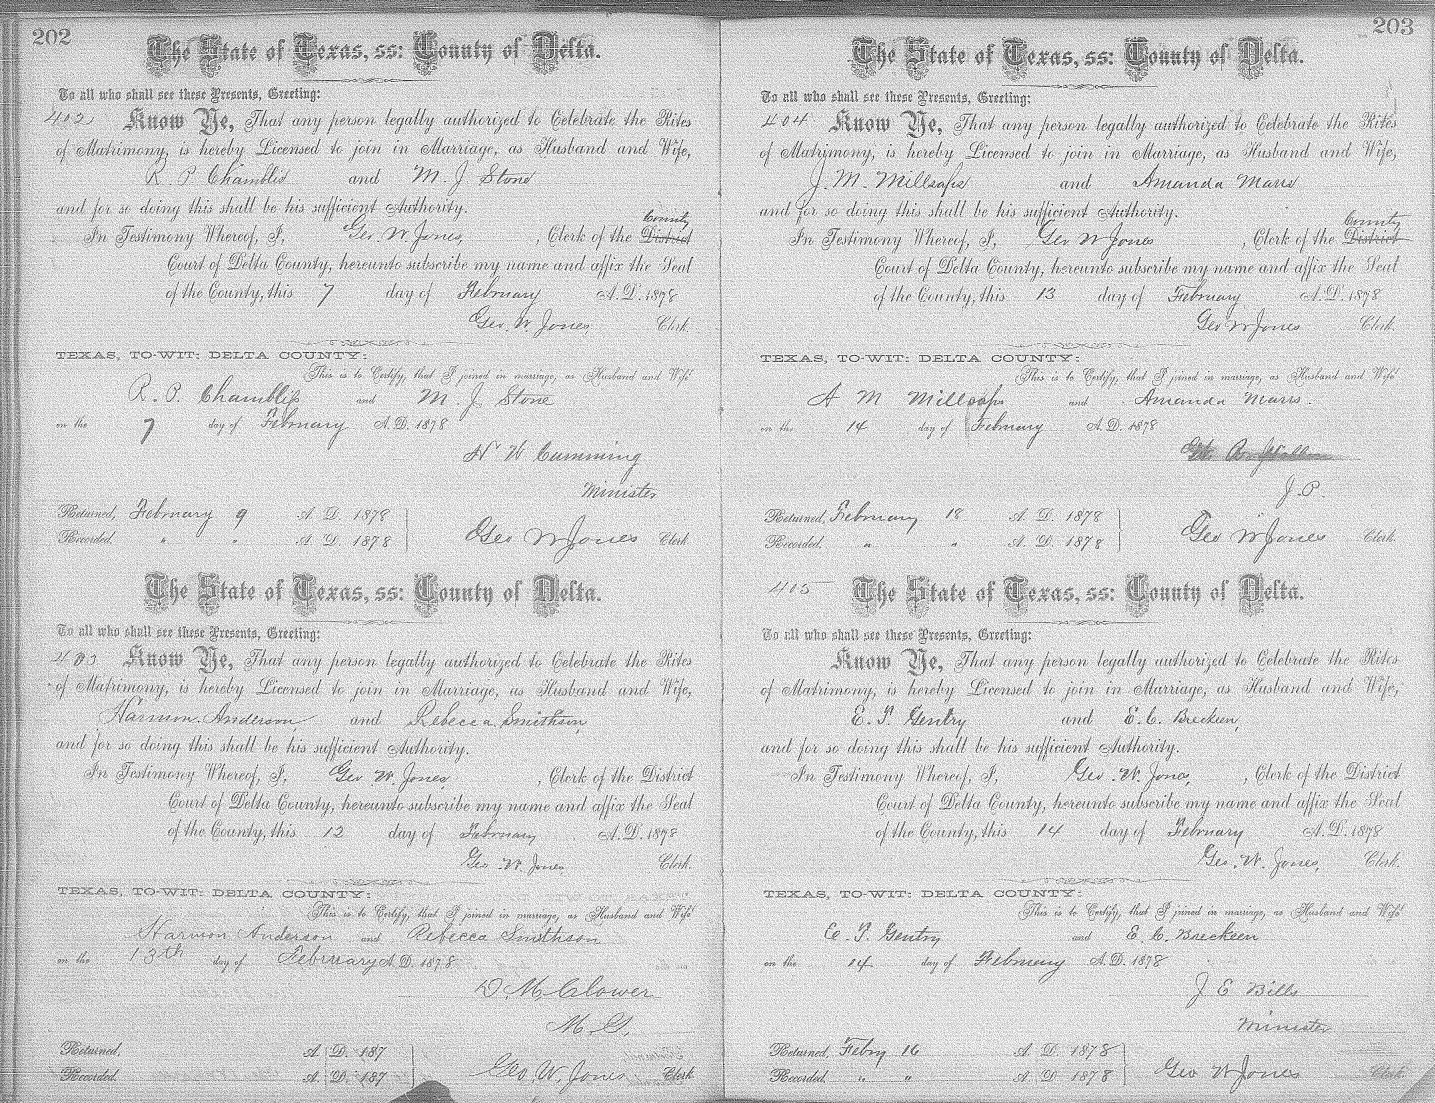 202
The State of Texas, ss: County of Delta.
To all who shall see these Presents, Greeting:
402 Know Ye, That any person legally authorized to Celebrate the Rites
of Matrimony, is hereby Licensed to join in Marriage, as Husband and Wife,
R. P Chambliss and M. J Stone
and for so doing this shall be his sufficient Authority.
County
In Testimony Whereof, I, Geo. W Jones, , Clerk of the District
Court of Delta County, hereunto subscribe my name and affix the Seal
of the County, this 7 day of February A.D. 1878
Geo. W. Jones Clerk.
TEXAS, TO-WIT: DELTA COUNTY:
This is to Certify, that I joined in marriage, as Husband and Wife
R. P. Chambliss and M J. Stone
on the 7 day of February A.D. 1878
W Cumming
Minister
Returned, February 9 A. D. 1878
Recorded. " " A. D. 1878 Geo W Jones Clerk
The State of Texas, ss: County of Delta.
To all who shall see these Presents, Greeting:
403 Know Ye, That any person legally authorized to Celebrate the Rites
of Matrimony, is hereby Licensed to join in Marriage, as Husband and Wife,
Harmon. Anderson, and Rebecca Smithson,
and for so doing this shall be his sufficient Authority.
In Testimony Whereof, I, Geo. W. Jones, , Clerk of the District
Court of Delta County, hereunto subscribe my name and affix the Seal
of the County, this 12 day of February A.D. 1878
Geo. W. Jones Clerk.
TEXAS, TO-WIT: DELTA COUNTY:
This is to Certify, that I joined in marriage, as Husband and Wife
Harmon Anderson and Rebecca Smithson
on the 13th day of February A.D. 1878
D. M. Clower
M. G.
Returned, A. D. 187
Recorded. A. D. 187 Geo. W. Jones Clerk
203
The State of Texas, ss: County of Delta.
To all who shall see these Presents, Greeting:
404 Know Ye, That any person legally authorized to Celebrate the Rites
of Matrimony, is hereby Licensed to join in Marriage, as Husband and Wife,
J. M. Millsaps and Amanda Marrs
and for so doing this shall be his sufficient Authority.
County
In Testimony Whereof, I, Geo W Jones , Clerk of the District
Court of Delta County, hereunto subscribe my name and affix the Seal
of the County, this 13 day of February A.D. 1878
Geo W Jones Clerk.
TEXAS, TO-WIT: DELTA COUNTY:
This is to Certify, that I joined in marriage, as Husband and Wife
A M Millsaps and Amanda Marrs.
on the 14 day of February A.D. 1878
J. P.
Returned, February 18 A. D. 1878
Recorded. " " A. D. 1878 Geo W Jones Clerk
405 The State of Texas, ss: County of Delta.
To all who shall see these Presents, Greeting:
Know Ye, That any person legally authorized to Celebrate the Rites
of Matrimony, is hereby Licensed to join in Marriage, as Husband and Wife,
E. P. Gentry and E. C. Breckeen,
and for so doing this shall be his sufficient Authority.
In Testimony Whereof, I, Geo. W. Jones, , Clerk of the District
Court of Delta County, hereunto subscribe my name and affix the Seal
of the County, this 14 day of February A.D. 1878
Geo. W. Jones, Clerk.
TEXAS, TO-WIT: DELTA COUNTY:
This is to Certify, that I joined in marriage, as Husband and Wife
E. P. Gentry and E. C. Breckeen
on the 14 day of February A.D. 1878
J E Bills
Minister
Returned, Febry 16 A. D. 1878
Recorded. " " A. D 1878 Geo W Jones Clerk